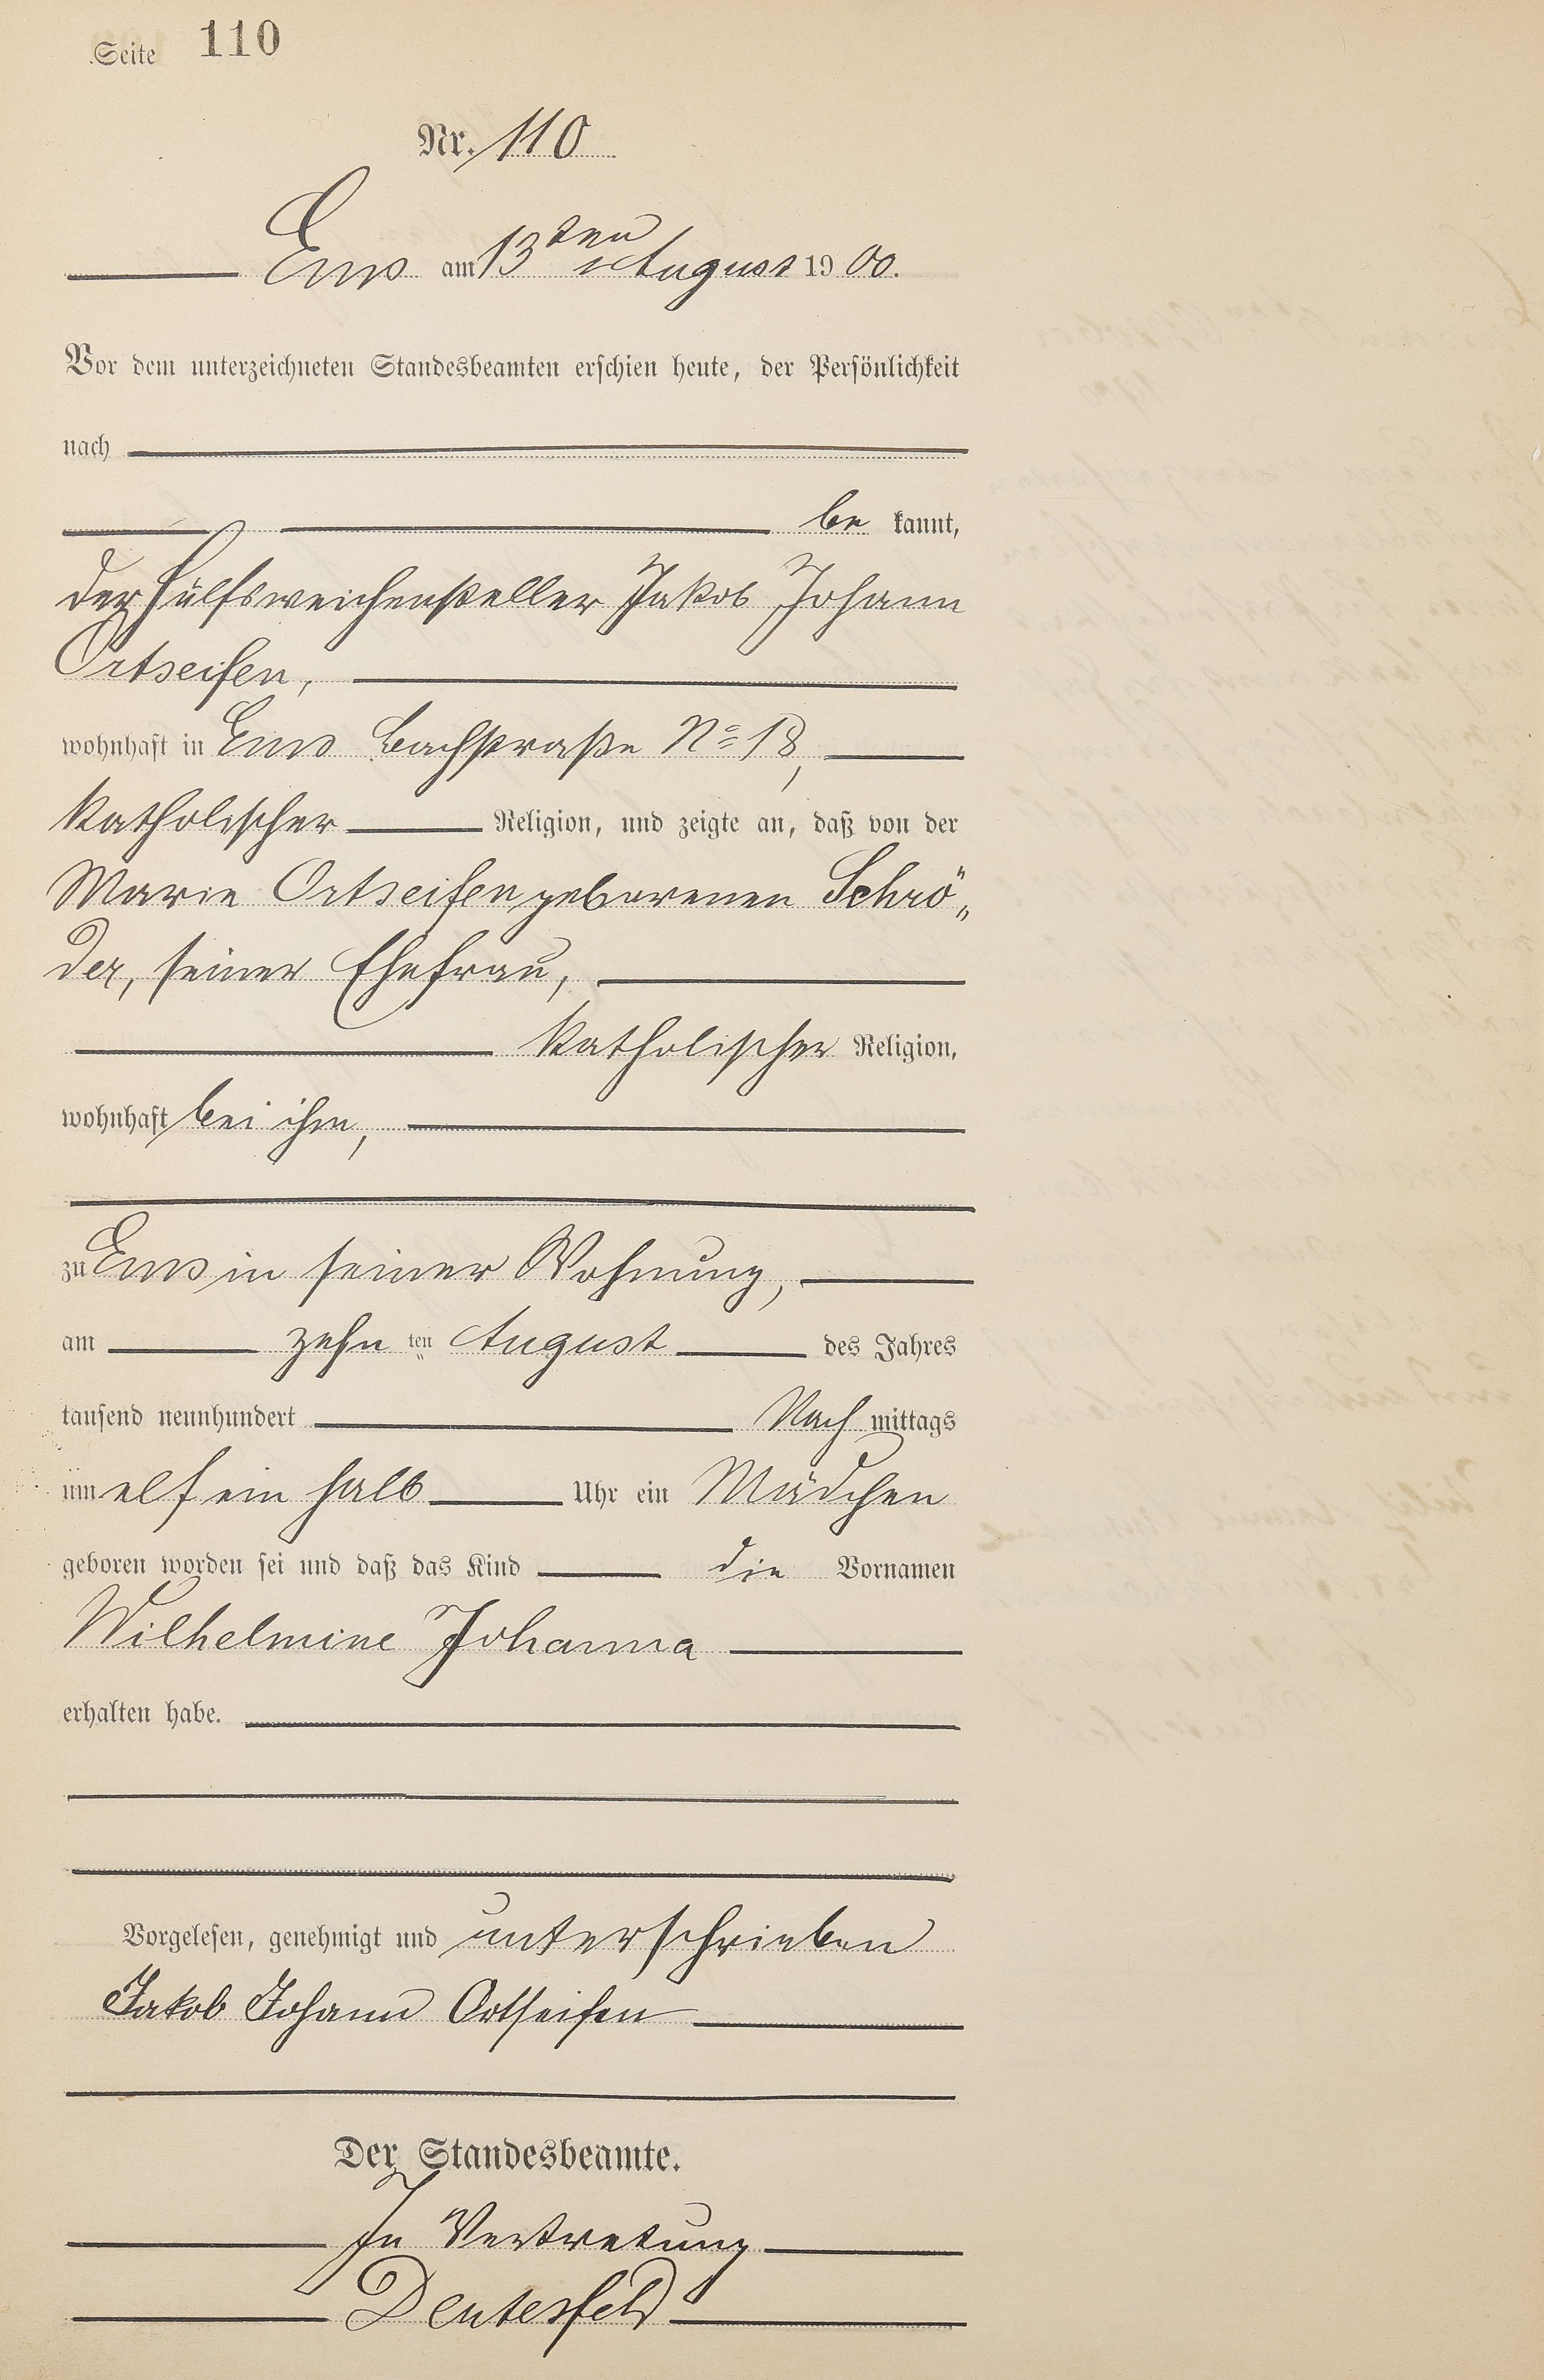 Seite 110
Nr. 110
Ems am 13ten August 1900.
Vor dem unterzeichneten Standesbeamten erschien heute, der Persönlichkeit
nach
be kannt,
der Hülfsweichensteller Jakob Johann
Ortseifen,
wohnhaft in Ems Bachstraße No 18,
katholischer Religion, und zeigte an, daß von der
Marie Ortseifen geborenen Schrö„
der, seiner Ehefrau,
katholischer Religion,
wohnhaft bei ihm,
zu Ems in seiner Wohnung,
am zehn ten August des Jahres
tausend neunhundert Nach mittags
um elf ein halb Uhr ein Mädchen
geboren worden sei und daß das Kind die Vornamen
Wilhelmine Johanna
erhalten habe.
Vorgelesen, genehmigt und unterschrieben
Jakob Johann Ortseifen
Der Standesbeamte.
In Vertretung